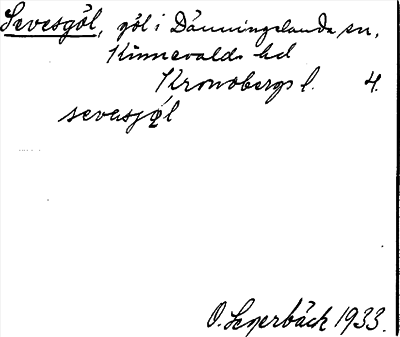 Sevesgöl, göl i Dänningelanda sn,
Kinnevalds hd
Kronobergs l. 4.
sevasjøl
O. Segerbäck 1933.